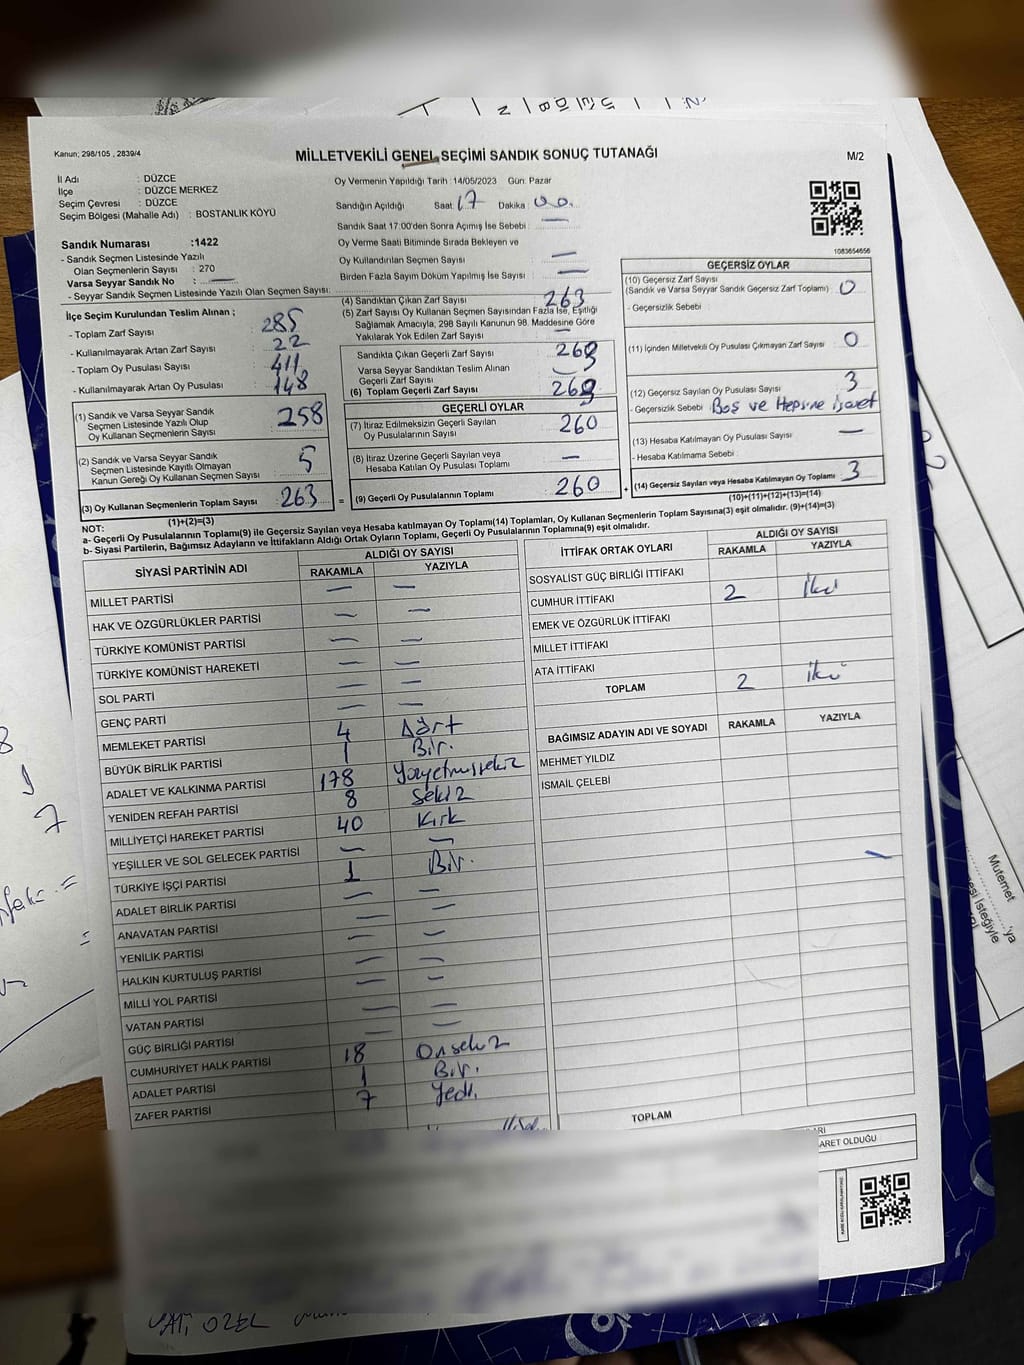 Kanun; 298/105 , 2839/4
MİLLETVEKİLİ GENEL SEÇİMİ SANDIK SONUÇ TUTANAĞI
M/2
İl Adı : DÜZCE
İlçe : DÜZCE MERKEZ
Seçim Çevresi : DÜZCE
Seçim Bölgesi (Mahalle Adı) : BOSTANLIK KÖYÜ
Oy Vermenin Yapıldığı Tarih : 14/05/2023 Gün: Pazar
Sandığın Açıldığı Saat 17 Dakika : 00.
Sandık Saat 17:00'den Sonra Açımış İse Sebebi : —
Oy Verme Saati Bitiminde Sırada Bekleyen ve
Oy Kullandırılan Seçmen Sayısı : —
Birden Fazla Sayım Döküm Yapılmış İse Sayısı : —
1083654656
Sandık Numarası :1422
- Sandık Seçmen Listesinde Yazılı
Olan Seçmenlerin Sayısı : 270
Varsa Seyyar Sandık No : —
- Seyyar Sandık Seçmen Listesinde Yazılı Olan Seçmen Sayısı:
İlçe Seçim Kurulundan Teslim Alınan ;
- Toplam Zarf Sayısı : 285
- Kullanılmayarak Artan Zarf Sayısı : 22
- Toplam Oy Pusulası Sayısı : 411
- Kullanılmayarak Artan Oy Pusulası : 148
(1) Sandık ve Varsa Seyyar Sandık
Seçmen Listesinde Yazılı Olup
Oy Kullanan Seçmenlerin Sayısı : 258
(2) Sandık ve Varsa Seyyar Sandık
Seçmen Listesinde Kayıtlı Olmayan
Kanun Gereği Oy Kullanan Seçmen Sayısı : 5
(3) Oy Kullanan Seçmenlerin Toplam Sayısı : 263 =
(1)+(2)=(3)
(4) Sandıktan Çıkan Zarf Sayısı : 263
(5) Zarf Sayısı Oy Kullanan Seçmen Sayısından Fazla İse, Eşitliği
Sağlamak Amacıyla, 298 Sayılı Kanunun 98. Maddesine Göre
Yakılarak Yok Edilen Zarf Sayısı : —
Sandıkta Çıkan Geçerli Zarf Sayısı : 263
Varsa Seyyar Sandıktan Teslim Alınan
Geçerli Zarf Sayısı : —
(6) Toplam Geçerli Zarf Sayısı : 263
GEÇERLİ OYLAR
(7) İtiraz Edilmeksizin Geçerli Sayılan
Oy Pusulalarının Sayısı : 260
(8) İtiraz Üzerine Geçerli Sayılan veya
Hesaba Katılan Oy Pusulası Toplamı : —
(9) Geçerli Oy Pusulalarının Toplamı : 260 +
GEÇERSİZ OYLAR
(10) Geçersiz Zarf Sayısı
(Sandık ve Varsa Seyyar Sandık Geçersiz Zarf Toplamı) : 0
- Geçersizlik Sebebi :
(11) İçinden Milletvekili Oy Pusulası Çıkmayan Zarf Sayısı : 0
(12) Geçersiz Sayılan Oy Pusulası Sayısı : 3
- Geçersizlik Sebebi : Boş ve Hepsine işaret
(13) Hesaba Katılmayan Oy Pusulası Sayısı : —
- Hesaba Katılmama Sebebi :
(14) Geçersiz Sayılan veya Hesaba Katılmayan Oy Toplamı : 3
(10)+(11)+(12)+(13)=(14)
NOT:
a- Geçerli Oy Pusulalarının Toplamı(9) ile Geçersiz Sayılan veya Hesaba katılmayan Oy Toplamı(14) Toplamları, Oy Kullanan Seçmenlerin Toplam Sayısına(3) eşit olmalıdır. (9)+(14)=(3)
b- Siyasi Partilerin, Bağımsız Adayların ve İttifakların Aldığı Ortak Oyların Toplamı, Geçerli Oy Pusulalarının Toplamına(9) eşit olmalıdır.
SİYASİ PARTİNİN ADI ALDIĞI OY SAYISI
RAKAMLA YAZIYLA
MİLLET PARTİSİ — —
HAK VE ÖZGÜRLÜKLER PARTİSİ — —
TÜRKİYE KOMÜNİST PARTİSİ — —
TÜRKİYE KOMÜNİST HAREKETİ — —
SOL PARTİ — —
GENÇ PARTİ — —
MEMLEKET PARTİSİ 4 Dört
BÜYÜK BİRLİK PARTİSİ 1 Bir.
ADALET VE KALKINMA PARTİSİ 178 Yüzyetmişsekiz
YENİDEN REFAH PARTİSİ 8 Sekiz
MİLLİYETÇİ HAREKET PARTİSİ 40 Kırk
YEŞİLLER VE SOL GELECEK PARTİSİ — —
TÜRKİYE İŞÇİ PARTİSİ 1 Bir.
ADALET BİRLİK PARTİSİ — —
ANAVATAN PARTİSİ — —
YENİLİK PARTİSİ — —
HALKIN KURTULUŞ PARTİSİ — —
MİLLİ YOL PARTİSİ — —
VATAN PARTİSİ — —
GÜÇ BİRLİĞİ PARTİSİ — —
CUMHURİYET HALK PARTİSİ 18 Onsekiz
ADALET PARTİSİ 1 Bir.
ZAFER PARTİSİ 7 Yedi.
İTTİFAK ORTAK OYLARI ALDIĞI OY SAYISI
RAKAMLA YAZIYLA
SOSYALİST GÜÇ BİRLİĞİ İTTİFAKI
CUMHUR İTTİFAKI 2 İki
EMEK VE ÖZGÜRLÜK İTTİFAKI
MİLLET İTTİFAKI
ATA İTTİFAKI
TOPLAM 2 İki
BAĞIMSIZ ADAYIN ADI VE SOYADI RAKAMLA YAZIYLA
MEHMET YILDIZ
İSMAİL ÇELEBİ
TOPLAM
ARET OLDUĞU
ÖZEL
Muternet
'ya
esi İsteğiyle